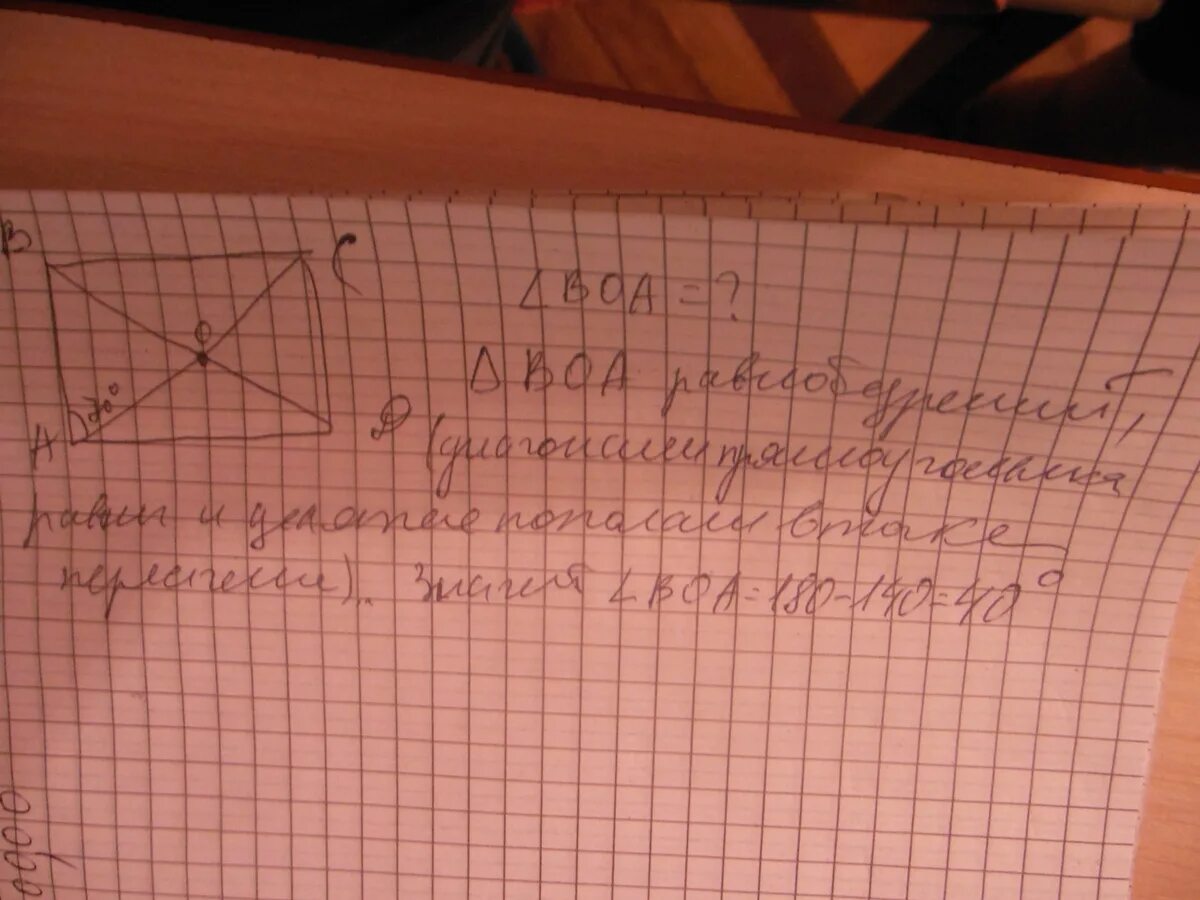 B
C
O
70°
A
D
∠BOA = ?
△BOA равнобедренный,
(диагонали прямоугольника
равны и делятся пополам в точке
пересечения). Значит ∠BOA=180-140=40°